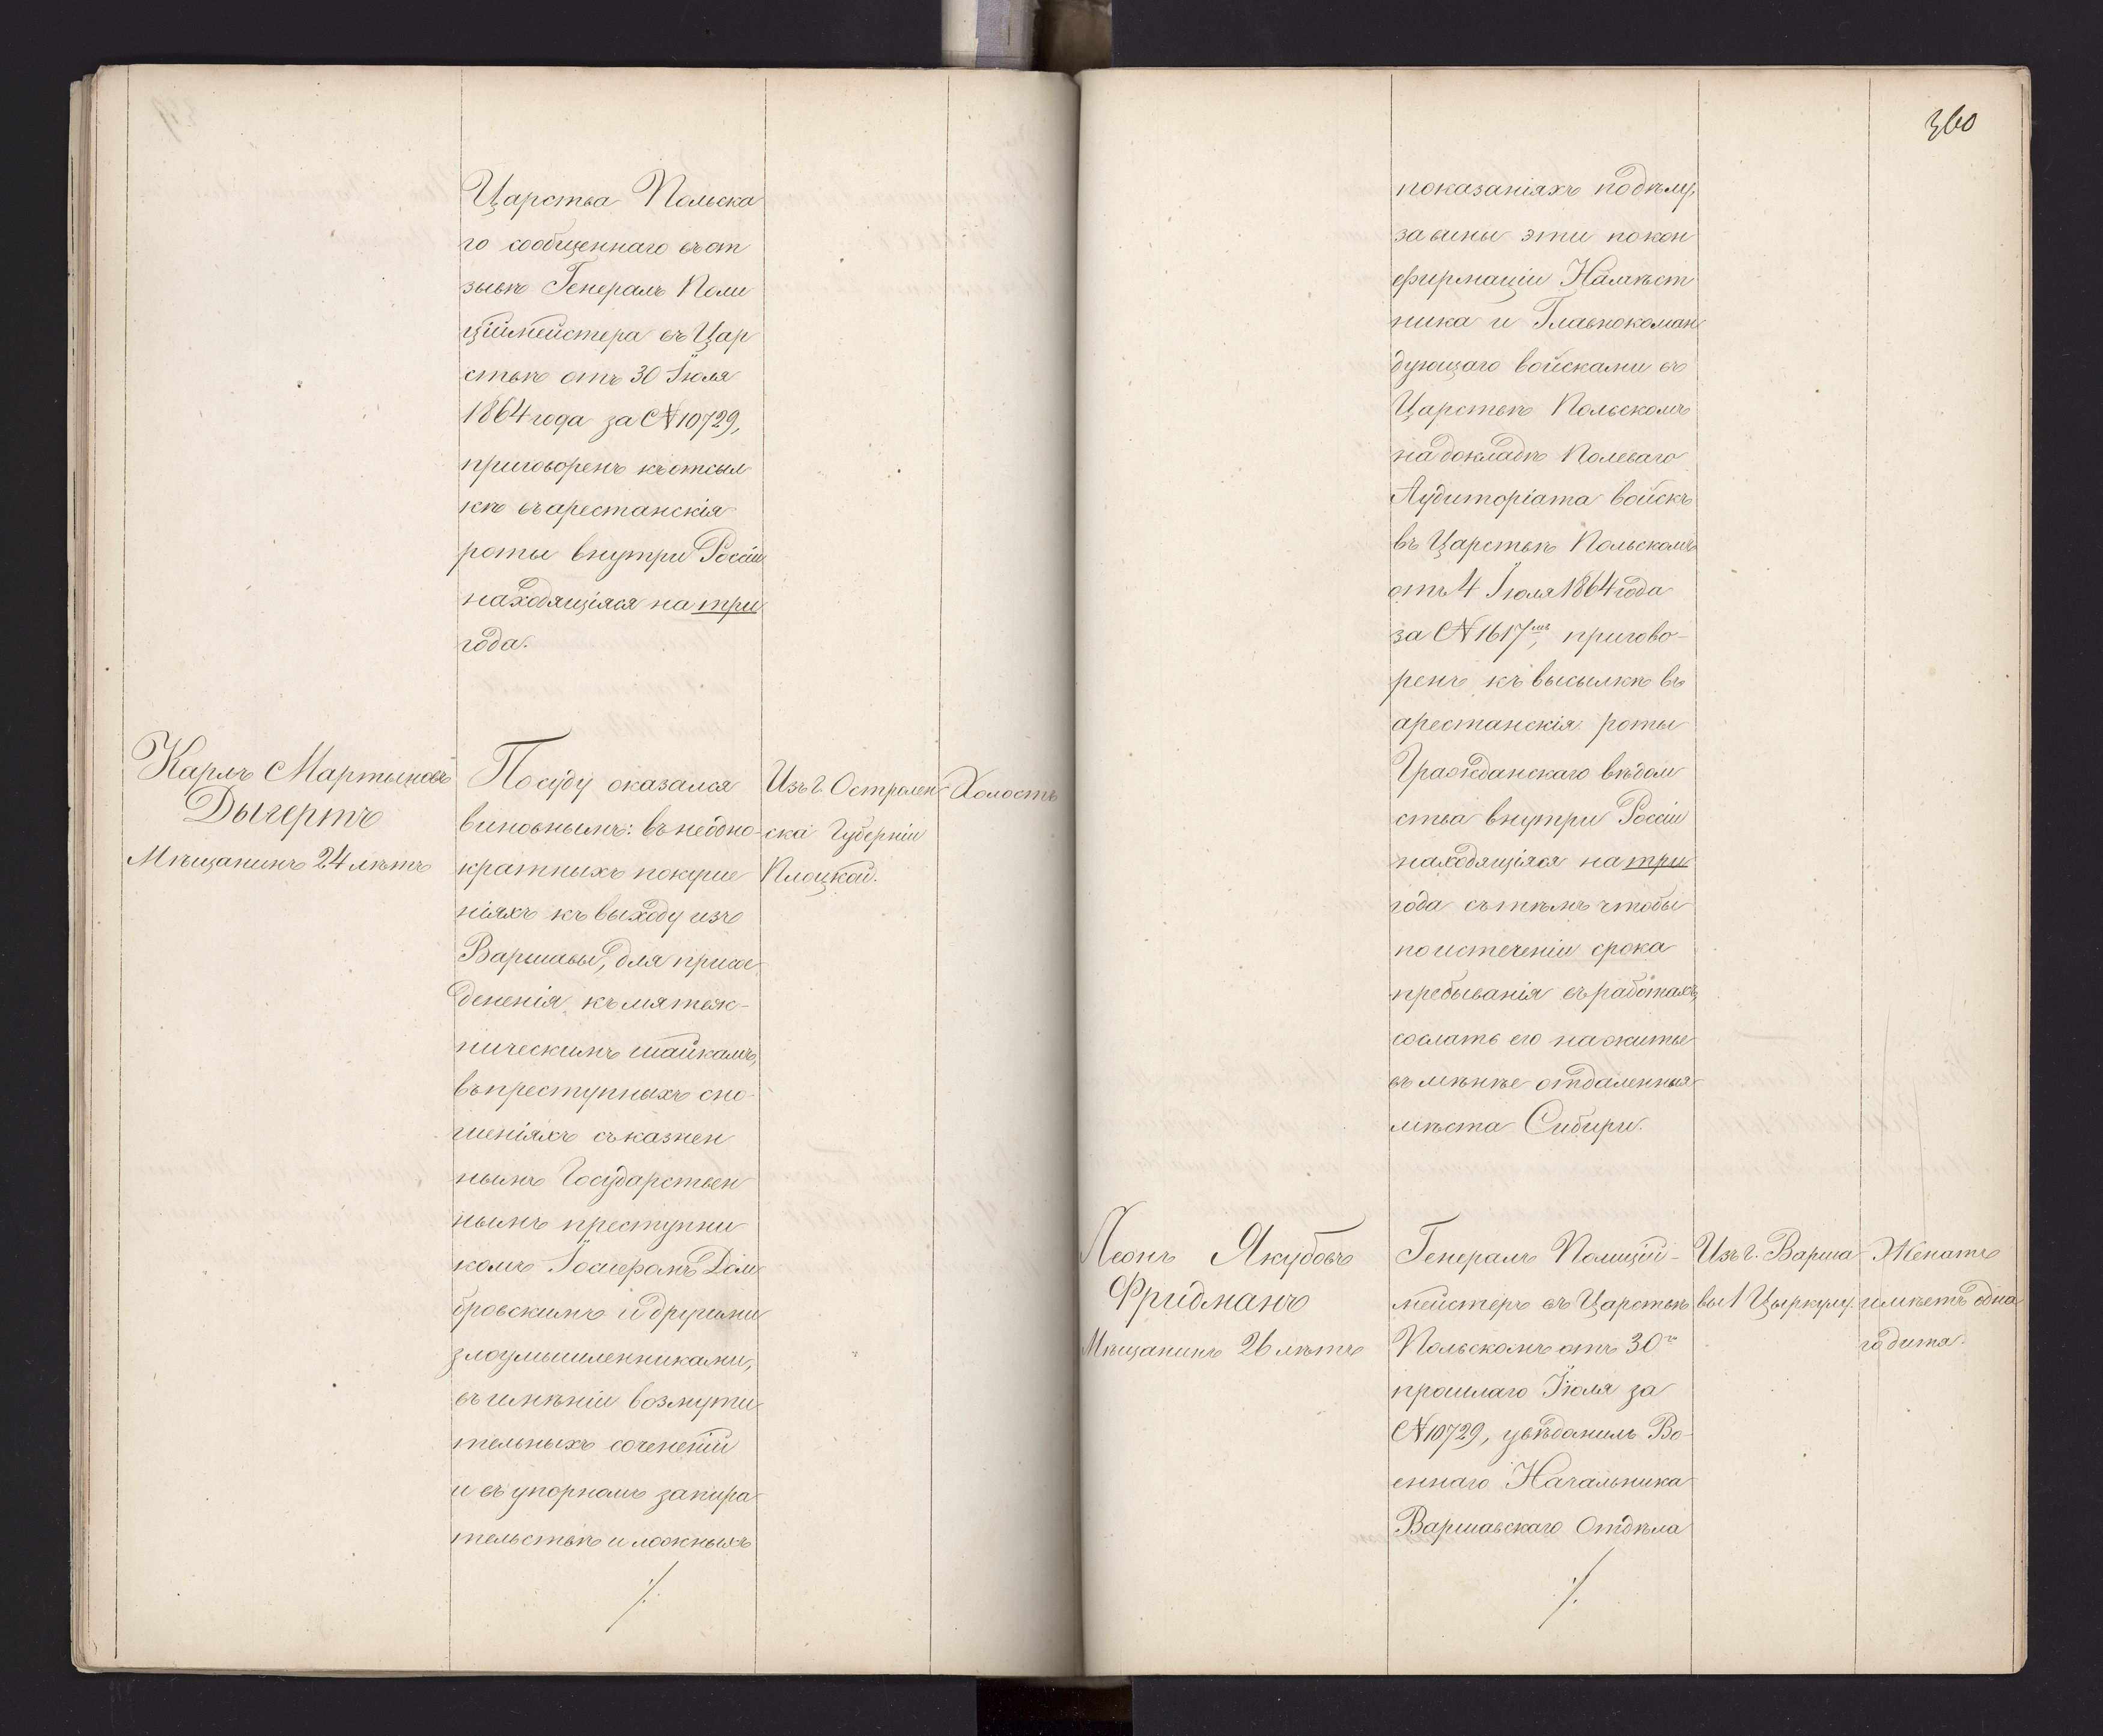 Царства Польска
го сообщеннаго въ от
зывѣ Генералъ Поли
ціймейстера въ Цар
ствѣ отъ 30 Іюля
1864 года за № 10729,
приговоренъ къ отсыл
кѣ въ арестанскія
роты внутри Россіи
находящіяся на три
года.
Карлъ Мартыновъ
Дыгертъ
Мѣщанинъ 24 лѣтъ
По суду оказался
виновнымъ: въ неодно-
кратныхъ покуше
ніяхъ къ выходу изъ
Варшавы, для присое
диненія къ мятеж-
ническимъ шайкамъ,
въ преступныхъ сно-
шеніяхъ съ казнен
нымъ Государствен
нымъ преступни
комъ Іосифомъ Дом
бровскимъ и другими
злоумышленниками,
въ имѣніи возмути
тельныхъ соченений
и въ упорномъ запира
тельствѣ и ложныхъ
Изъ г. Остролен
ска Губерніи
Плоцкой.
Холостъ
360
показаніяхъ по дѣлу,
за вины эти по кон
фирмаціи Намѣст
ника и Главнокоман
дующаго войсками въ
Царствѣ Польскомъ
на докладѣ Полеваго
Аудиторіата войскъ
въ Царствѣ Польскомъ
отъ 4 Іюля 1864 года
за № 1617мъ, пригово-
ренъ къ высылкѣ въ
арестанскія роты
Гражданскаго вѣдом
ства внутри Россіи
находящіяся на три
года съ тѣмъ чтобы
по истеченіи срока
пребыванія въ работахъ,
сослать его на житье
въ менѣе отдаленныя
мѣста Сибири.
Леонъ Якубовъ
Фридманъ
Мѣщанинъ 26 лѣтъ
Генералъ Полицій-
мейстеръ въ Царствѣ
Польскомъ отъ 30го
прошлаго Іюля за
№ 10729, увѣдомилъ Во-
еннаго Начальника
Варшавскаго Отдѣла
Изъ г. Варша
вы 1 Цыркулу.
Женатъ
имѣетъ одно
го дитя.